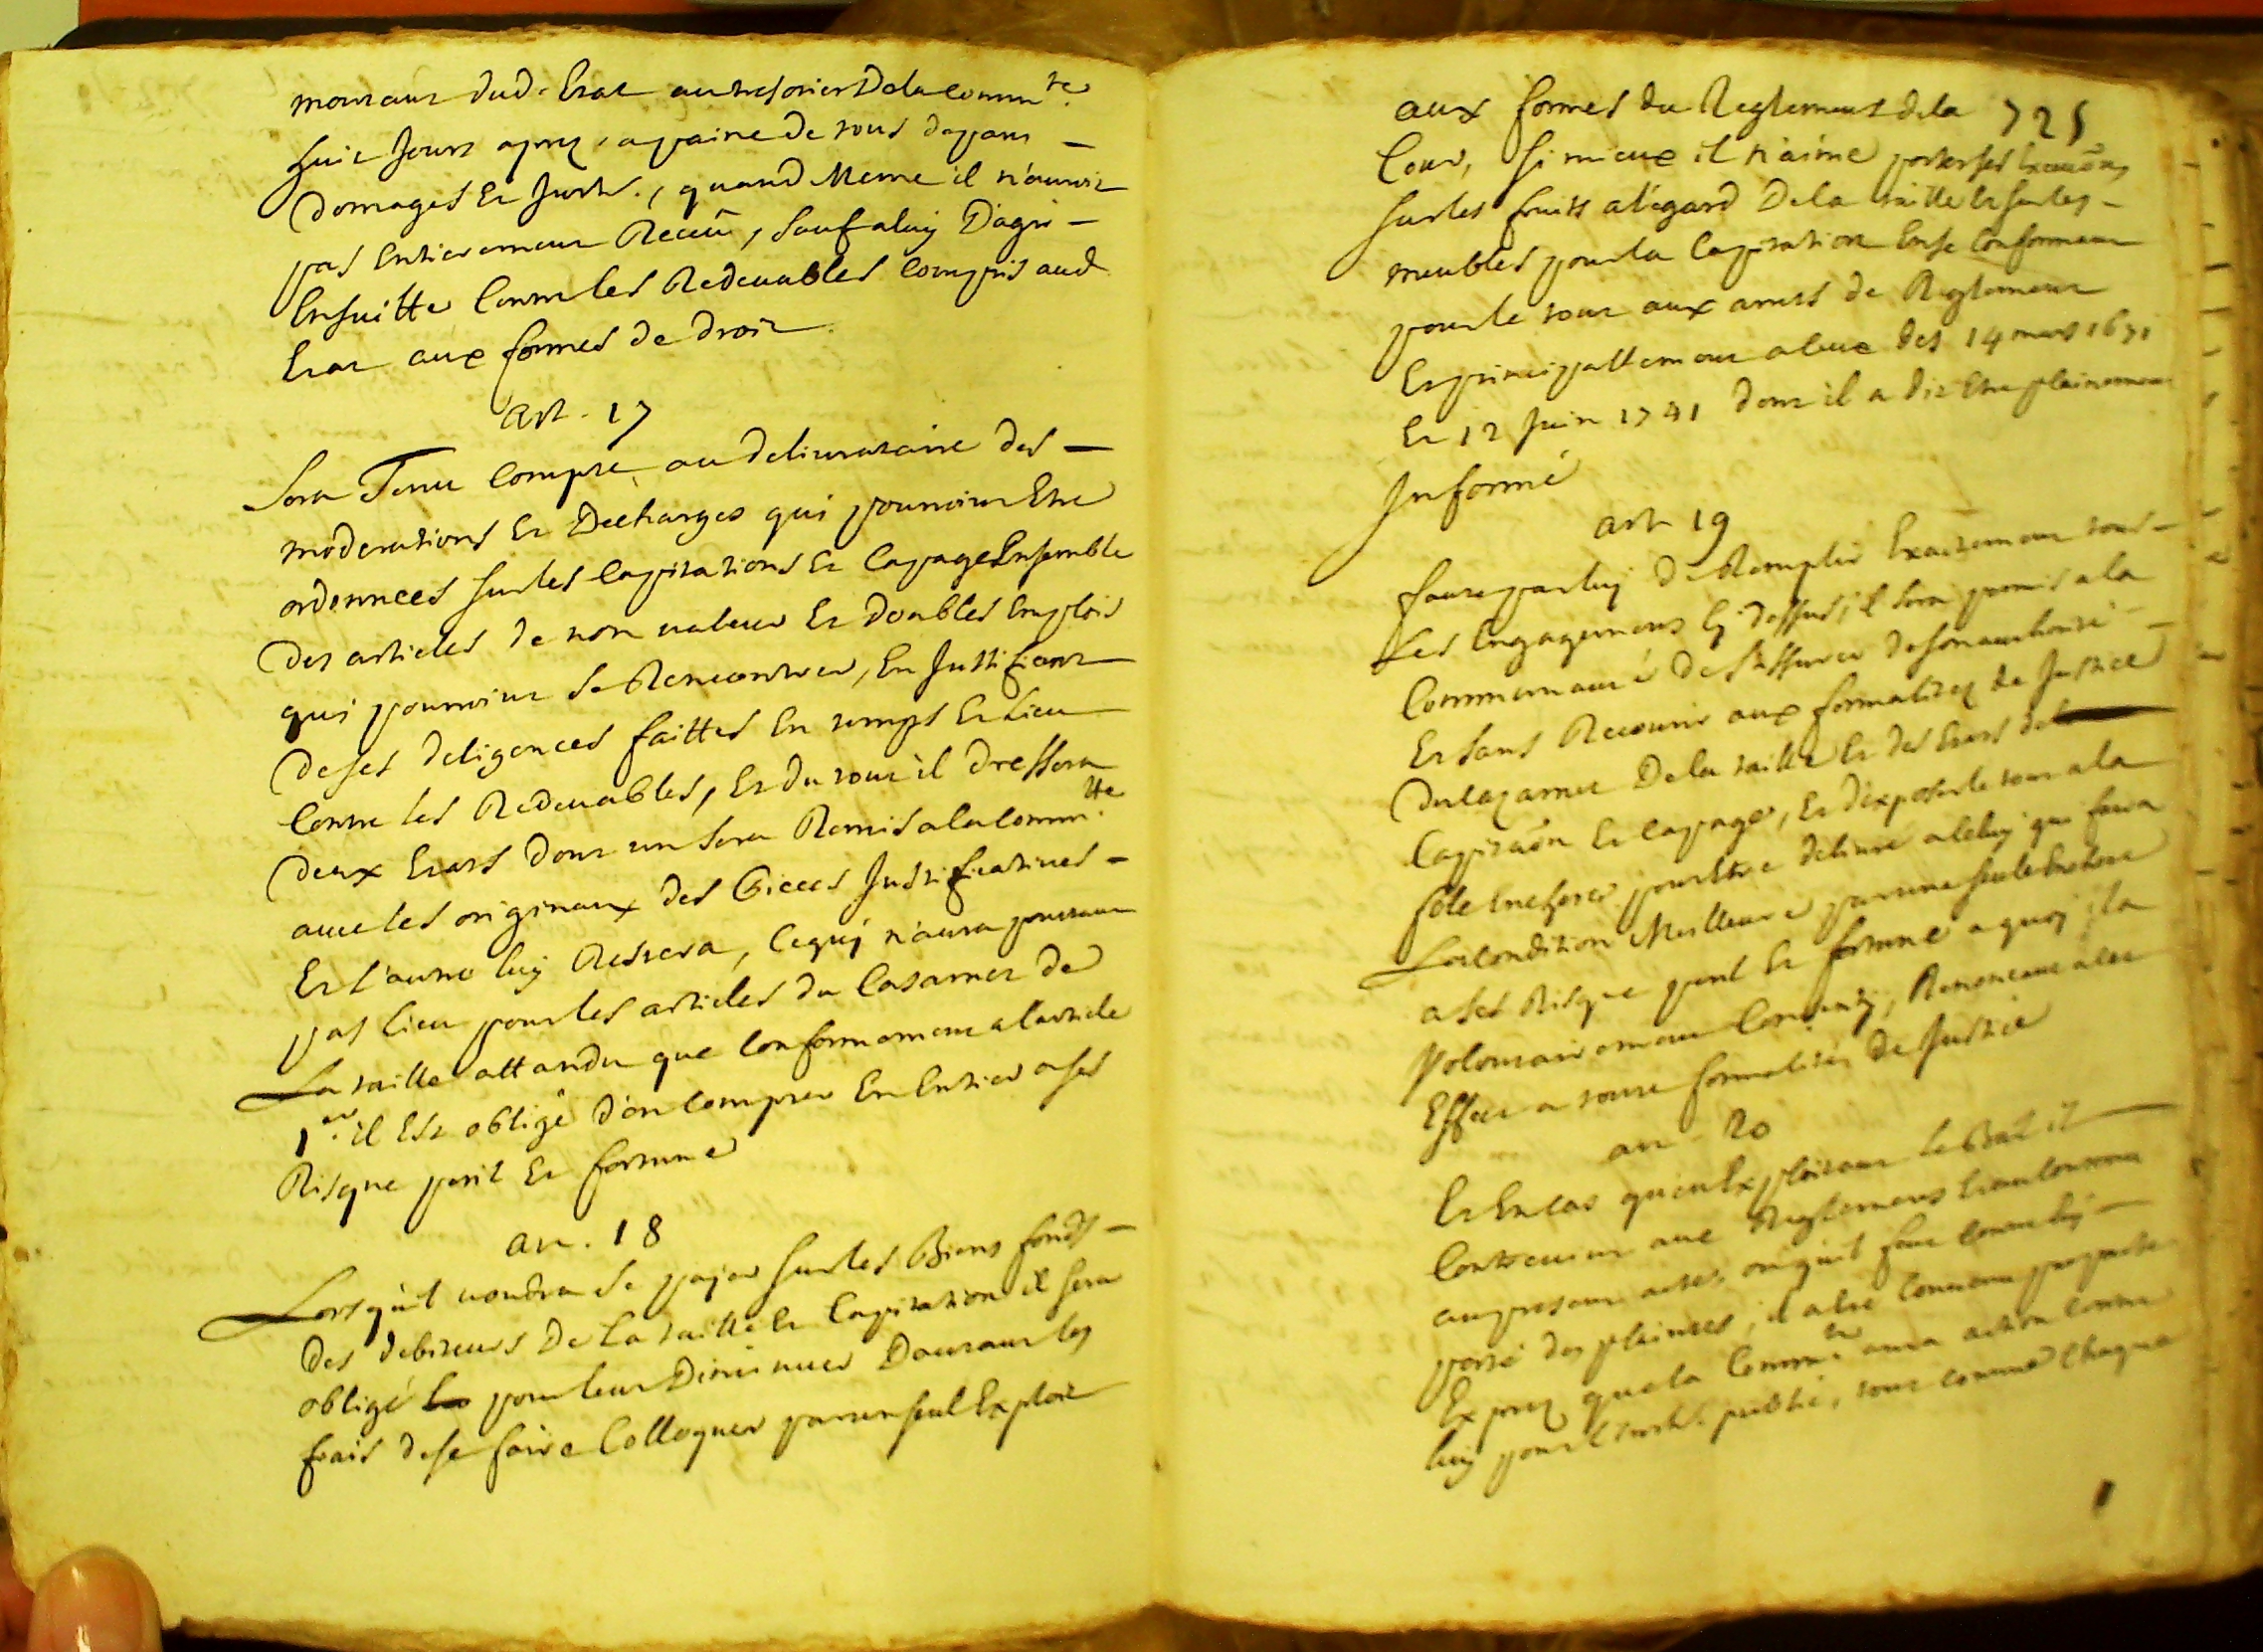 montant dud. Etat au tresorier Dela comm.te
huit Jours aprez, a paine de tous depans -
Domages Et Jnth., quand Meme il n'auroit
pas Entierement Receu, Sauf a luy D'agir -
Ensuitte Contre les Redeuables Compris aud
Etat aux formes de droit
art. 17
Sera Tenu Compte au deliurataire des -
moderations Et Decharges qui pourroint Etre
ordonnees sur les Capitations Et Capage Ensemble
Des articles de non valeur Et doubles Emplois
qui pourroint se Rencontrer, En Justifiant
De ses deligences faittes En temps Et Lieu
Contre les Redeuables, Et du tout il dressera
Deux Etats dont un sera Remis a la Comm.tte
auec les originaux des Pieces Justificatiues -
Et l'autre luy Restera, Ce quy n'aura pourtant
pas lieu pour les articles du Casarnet de
La taille attandu que Conformement a l'article
1er. il Est obligé d'en compter En Entier a ses
Risque peril Et fortune
art. 18
Lorsquil voudra se payer sur les Biens fonds -
Des debiteurs De La taille Et Capitation il sera
obligé pour leur Diminuer Dautant les
frais de se faire Colloquer par un seul Exploit
aux formes du Reglement dela 725
Cour, si mieux il n'aime porter ses Executions
sur les fruits a l'egard De la taille Et sur les -
meubles pour la Capitation En se Conformant
pour le tout aux arrets de Reglement
Et principallement a ceux des 14 mars 1671
Et 12 Juin 1741 dont il a dit Etre plainement
Jnformé
art 19
faute par luy de Remplir Exactement tous -
Les Engagements Cy dessus, il sera permis a la
Communauté de s'assurer de son authorité -
Et sans Recourir aux formalitez de Justice
Du Cazarnet De la taille Et des Etats de
Capitaon Et Capage, Et d'exposer le tout a la
fole Enchere pour Etre deliuré a Celuy qui faira
La Condition Meilleure par une seule Enchere
a ses Risque peril Et fortune a quoy il a
Volontairement Consenty, Renonceant a cet
Effet a toute formalités de Justice
art. 20
Et En cas qu'en Exploitant le Bail il
Contreuint aux Reglements Et au Contenu
au present acte, ou quil fut Contre luy -
porté des plaintes, il a Eté Conuenu par pacte
Exprez que la Comm.té aura action Contre
luy pour l'Jnth. public, tout comme Chaque